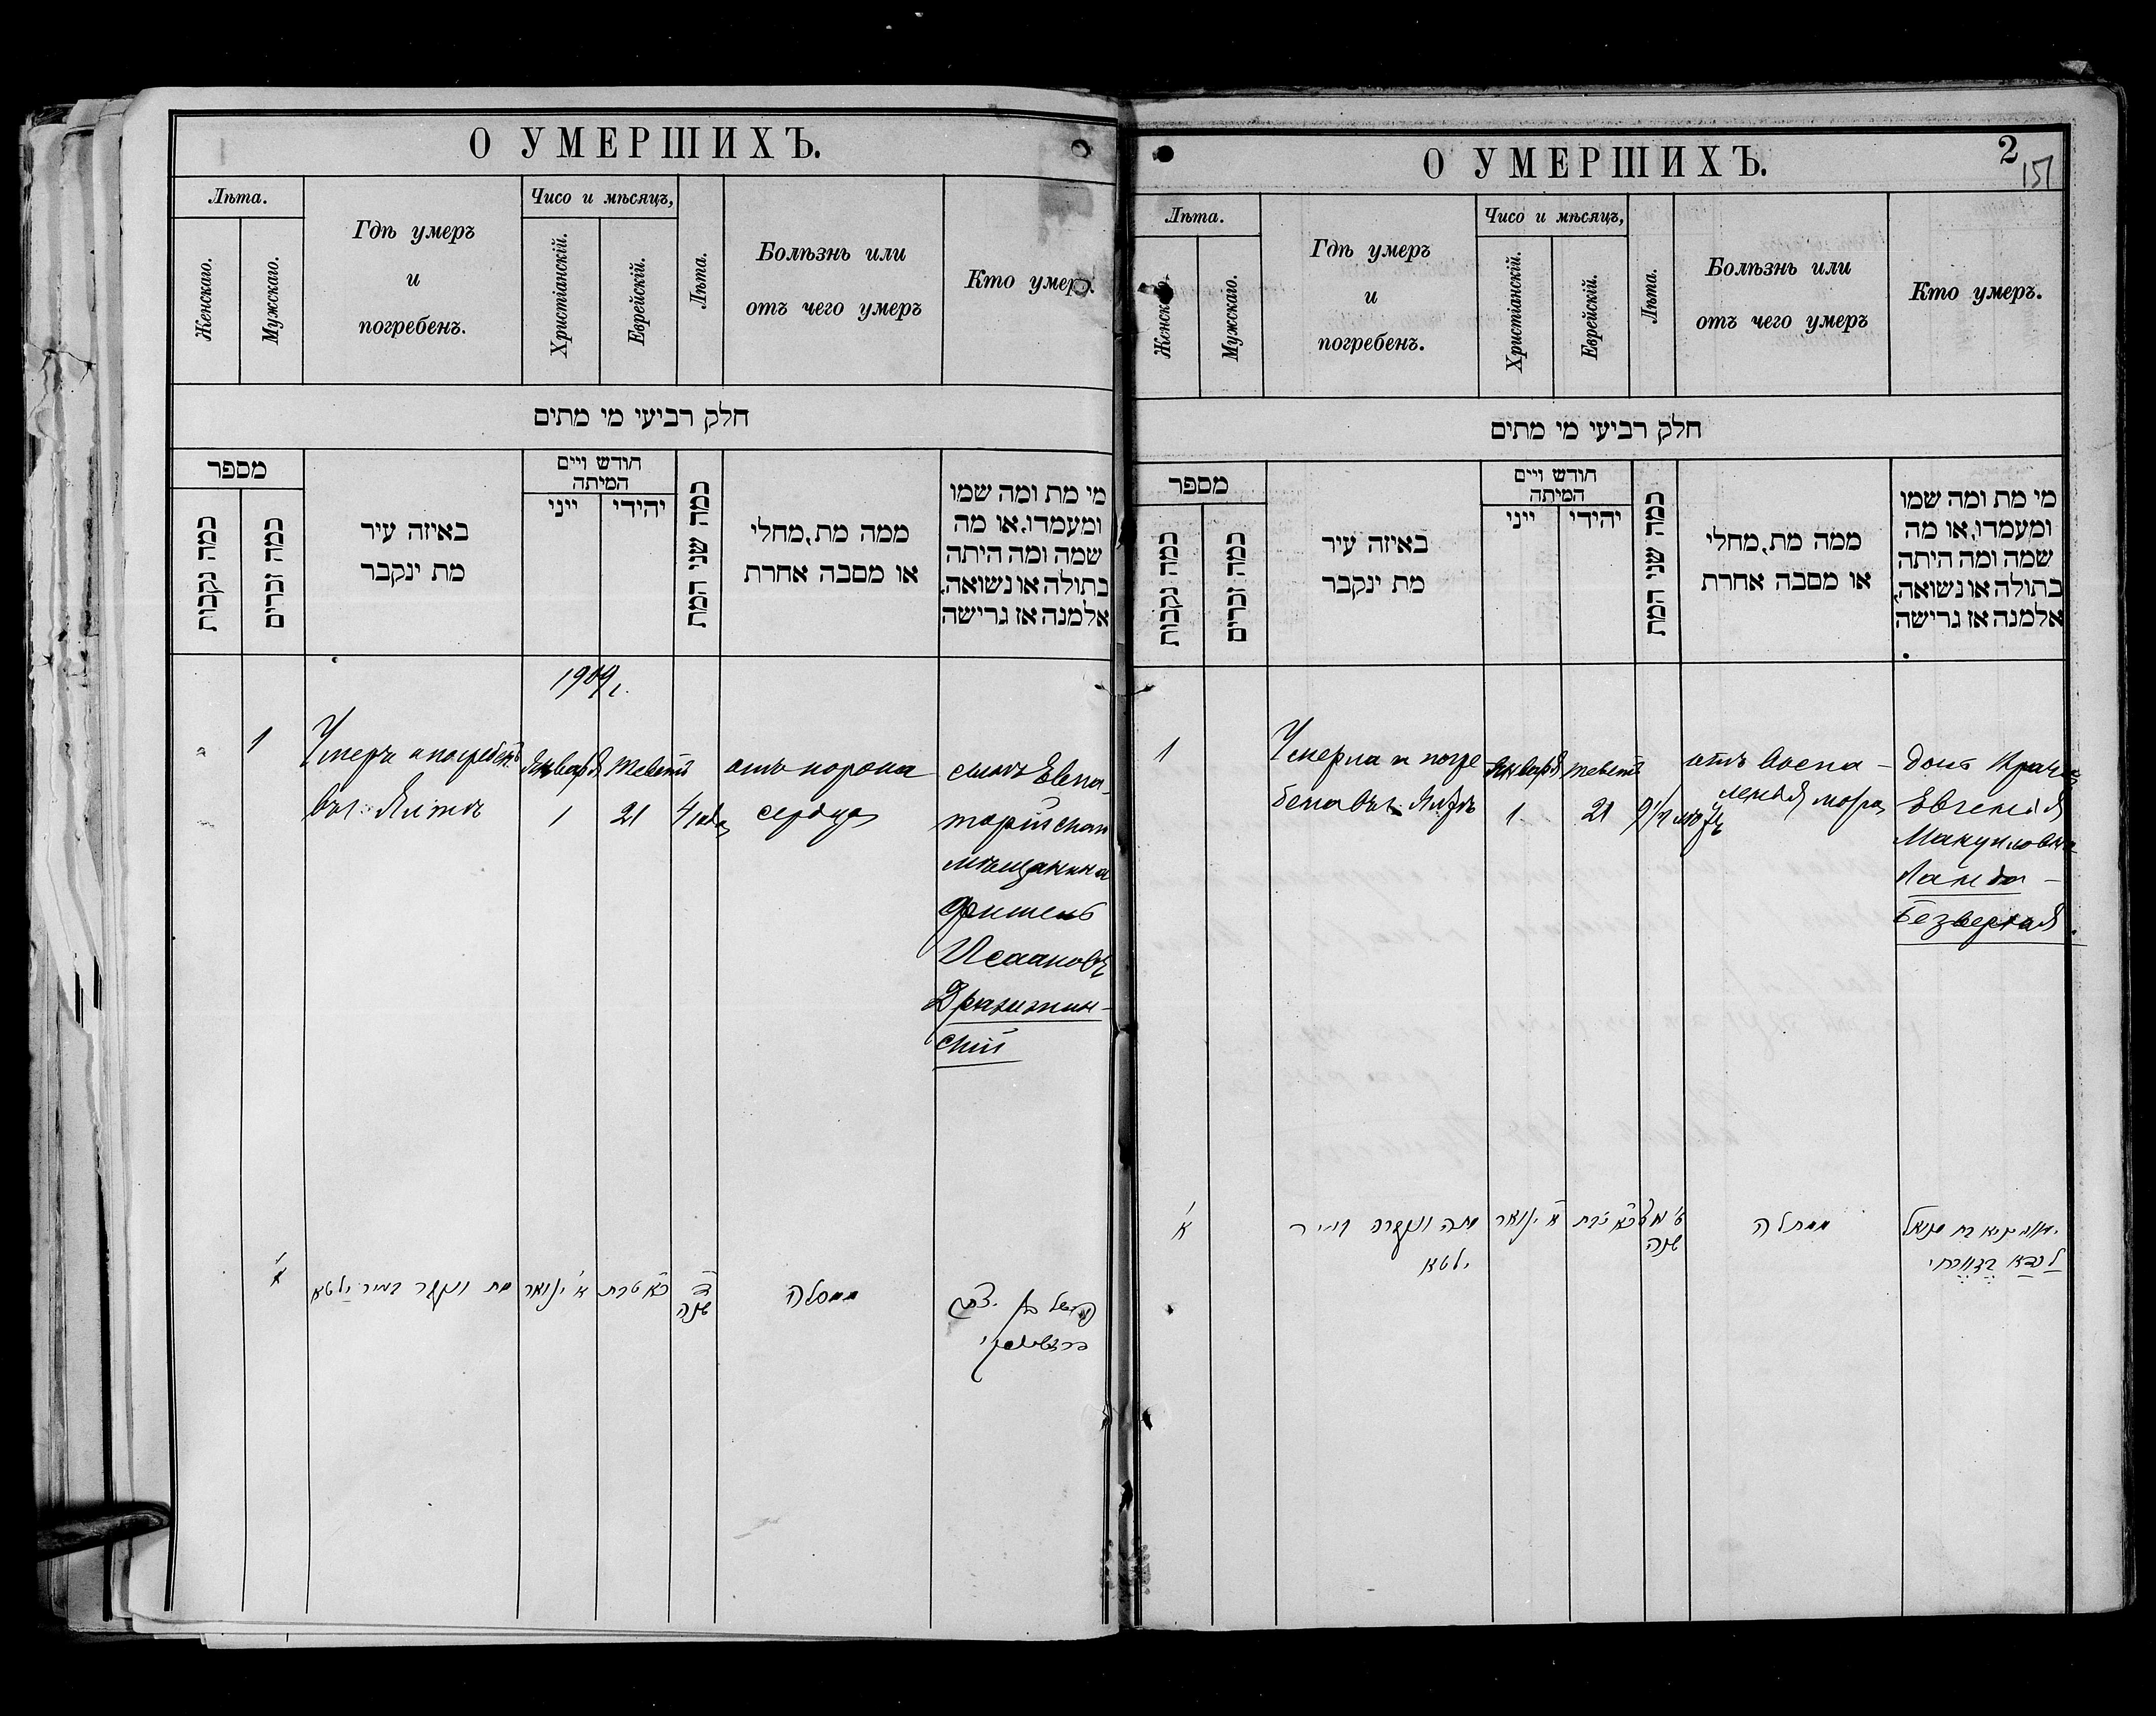 О УМЕРШИХЪ.
Лѣта.
Женскаго.
Мужскаго.
Гдѣ умеръ
и
погребенъ.
Чисо и мѣсяцъ,
Христіанскій.
Еврейскій.
Лѣта.
Болѣзнь или
отъ чего умеръ
Кто умеръ.
חלק רביעי מי מתים
מספר
כמה נקבות
כמה זכרים
באיזה עיר
מת ינקבר
חודש ויים
המיתה
ייני
יהידי
כמה שני המת
ממה מת, מחלי
או מסבה אחרת
מי מת ומה שמו
ומעמדו, או מה
שמה ומה היתה
בתולה או נשואה,
אלמנה אז גרישה
1909 г.
1
Умеръ и погребенъ
въ г. Ялтѣ
Января
1
Теветъ
21
4 года
отъ порока
сердца
сынъ Евпа-
торійскаго
мѣщанина
Фишель
Исааковъ
Дражнин-
скій
א'
מת ונקבר בעיר ילטא
א' ינואר
כ"א טבת
ד'
שנה
ממחלה
פישל בן יצחק
О УМЕРШИХЪ.
2
151
Лѣта.
Женскаго.
Мужскаго.
Гдѣ умеръ
и
погребенъ.
Чисо и мѣсяцъ,
Христіанскій.
Еврейскій.
Лѣта.
Болѣзнь или
отъ чего умеръ
Кто умеръ.
חלק רביעי מי מתים
מספר
כמה נקבות
כמה זכרים
באיזה עיר
מת ינקבר
חודש ויים
המיתה
ייני
יהידי
כמה שני המת
ממה מת, מחלי
או מסבה אחרת
מי מת ומה שמו
ומעמדו, או מה
שמה ומה היתה
בתולה או נשואה,
אלמנה אז גרישה
1
Умерла и погре
бена въ г. Ялтѣ
Января
1
Теветъ
21
9 1/2 лѣтъ
отъ воспа-
ленія мозга
дочь Врача
Евгенія
Мануиловна
Ланда-
Безверхая.
א'
מתה ונקברה בעיר
ילטא
א' ינואר
כ"א טבת
שנה
ממחלה
בת מנואל
לנדא